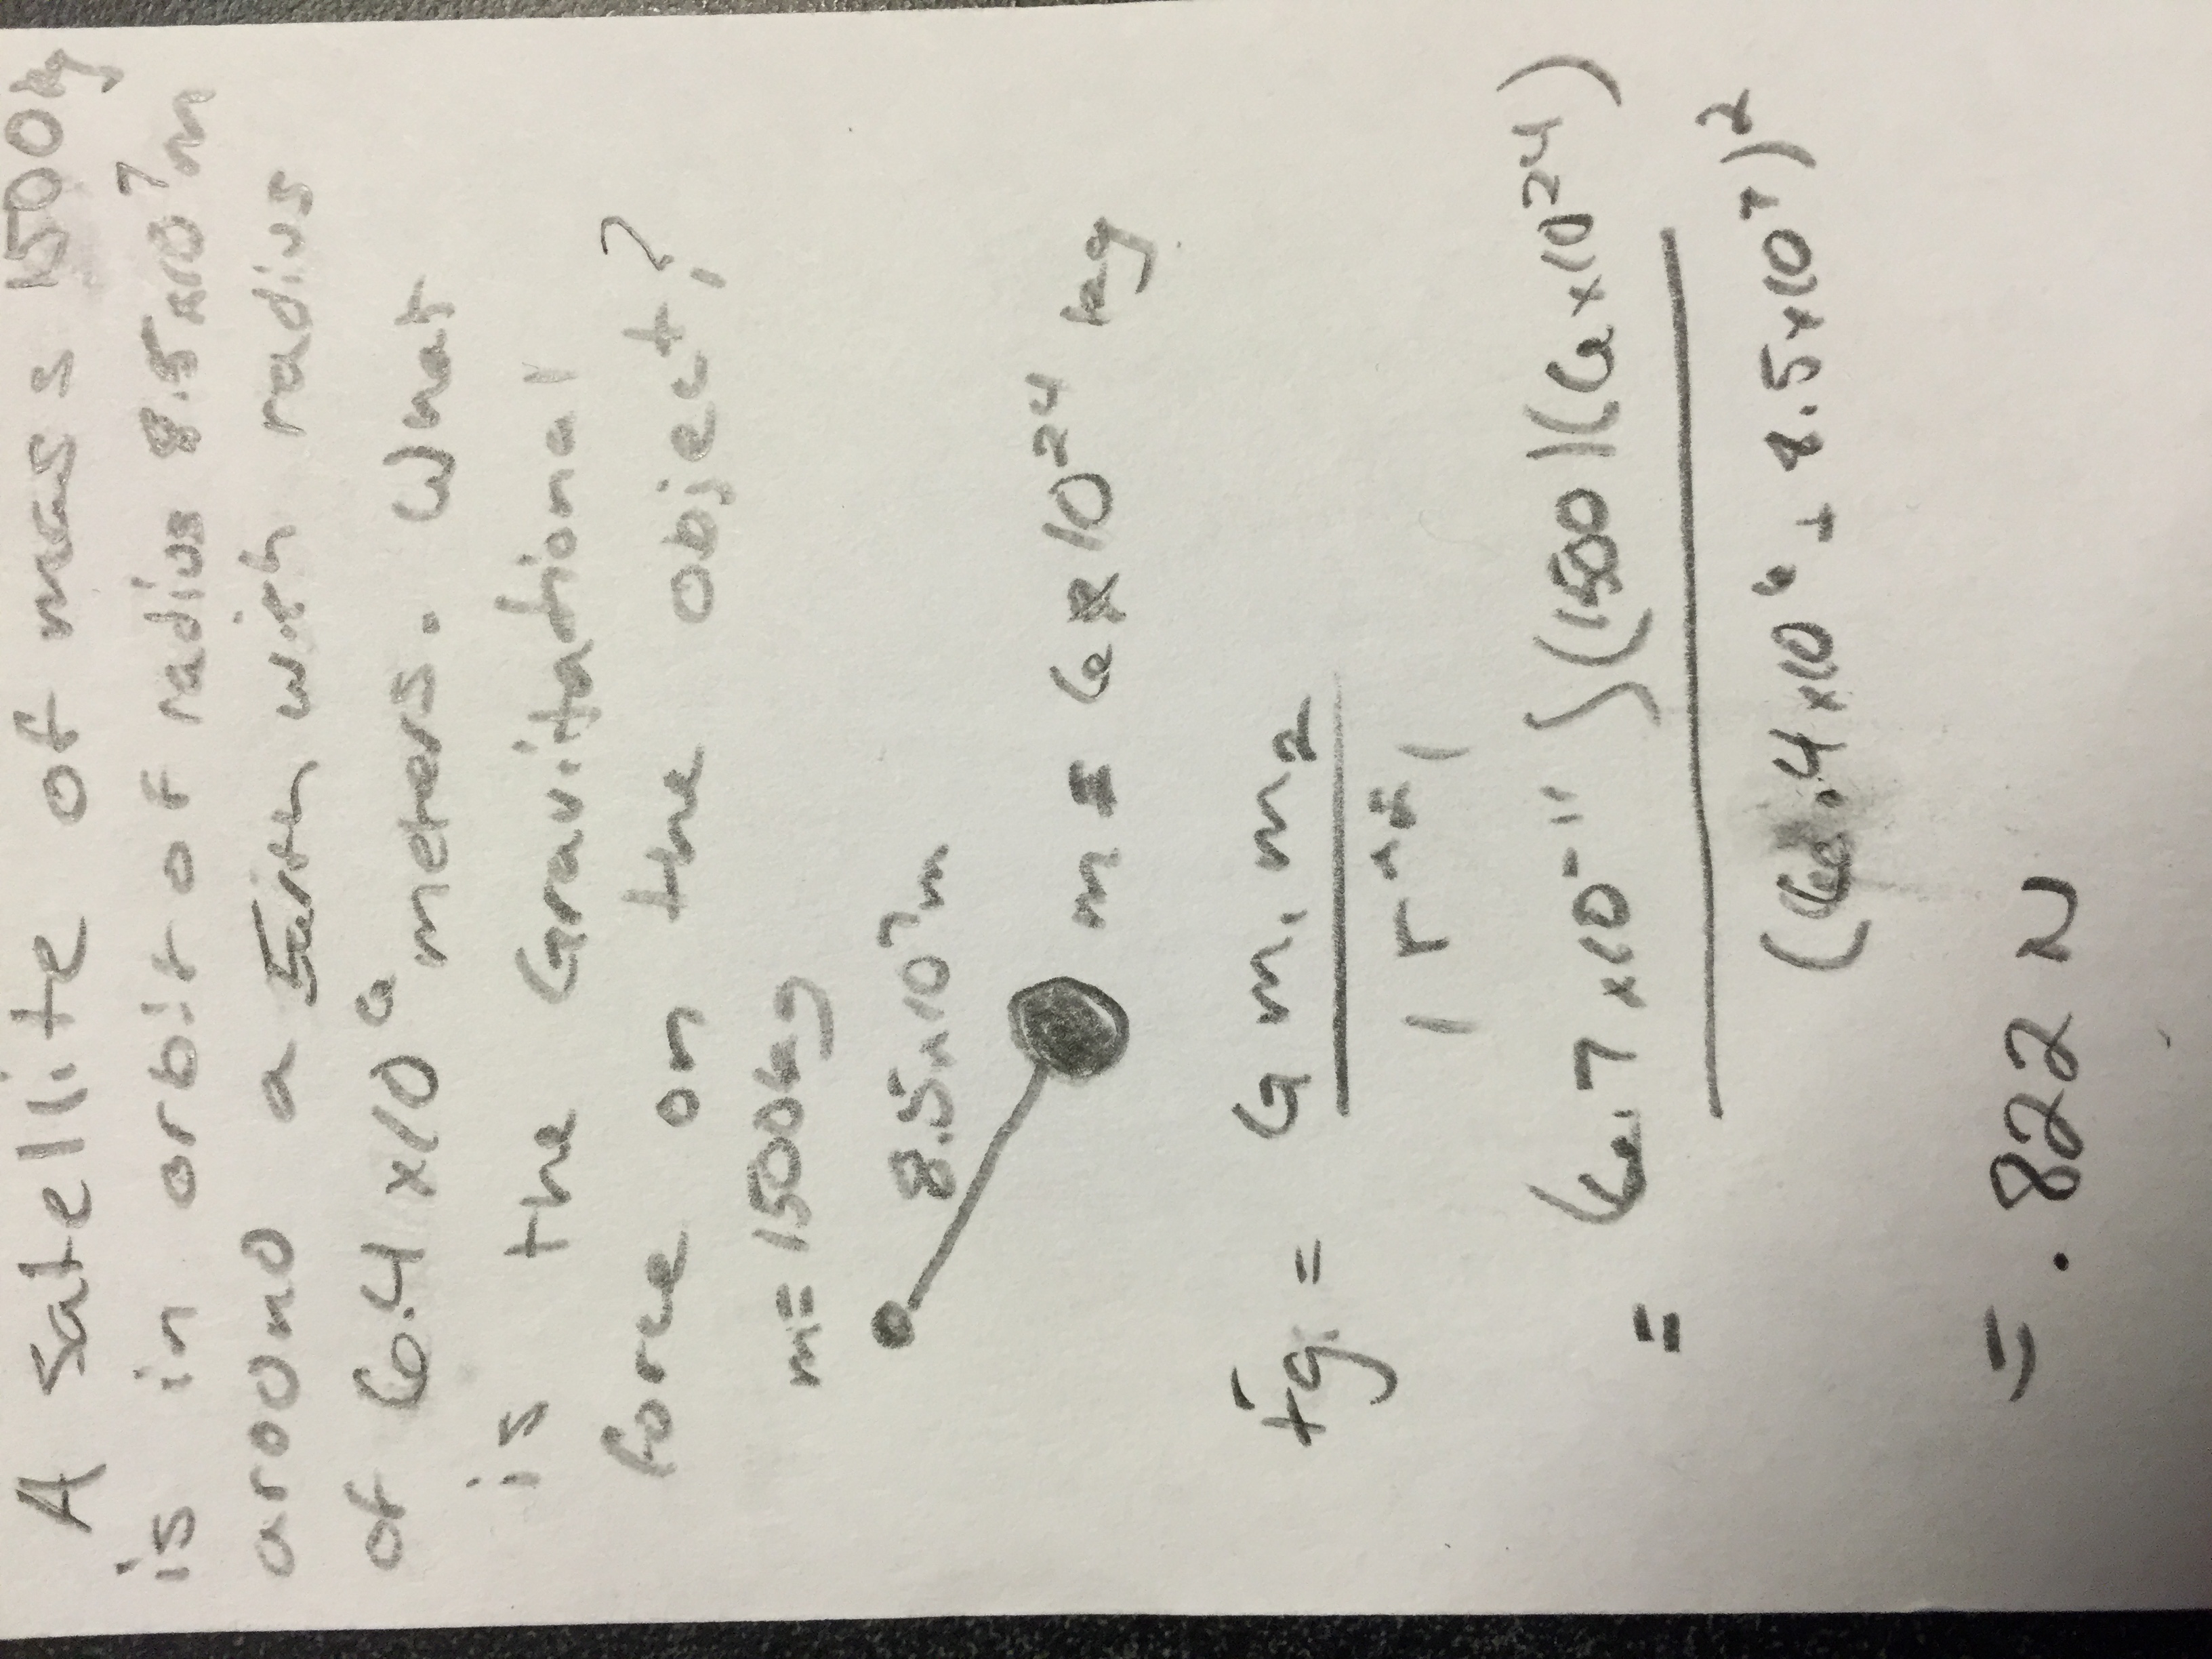 A Satellite of mass 1500kg
is in orbit of radius 8.5x10⁷m
around a Earth with radius
of 6.4x10⁶ meters. What
is the Gravitational
force on the object?
m=1500kg
8.5x10⁷m
m = 6x10⁻²⁴ kg
Fg = G m₁ m₂
| r² |
= (6.7x10⁻¹¹)(1500)(6x10²⁴)
(6.4x10⁶ + 8.5x10⁷)²
= .822 N